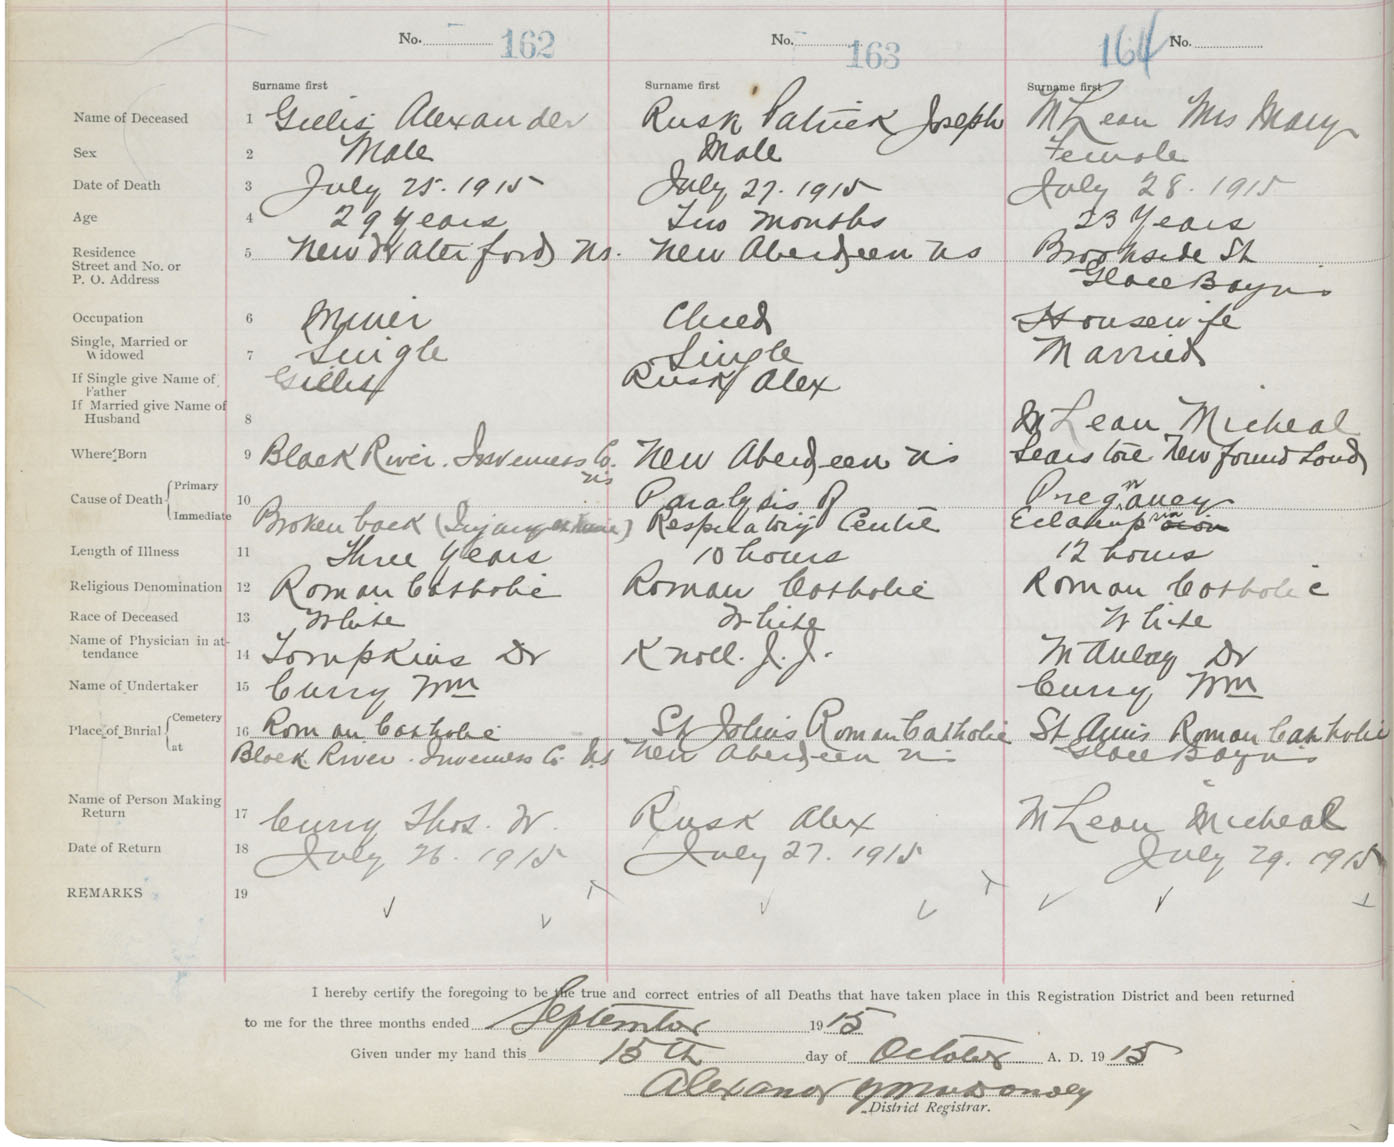 No. 162 No. 163 164 No.
Surname first Surname first Surname first
Name of Deceased 1 Gillis Alexander Rusk Patrick Joseph McLean Mrs Mary
Sex 2 Male Male Female
Date of Death 3 July 25. 1915 July 27. 1915 July 28. 1915
Age 4 29 Years Two months 23 Years
Residence
Street and No. or
P. O. Address 5 New Waterford, Ns. New Aberdeen Ns Brookside St
Glace Bay Ns
Occupation 6 Miner Child Housewife
Single, Married or
Widowed 7 Single Single Married
If Single give Name of
Father Gillis Rusk Alex
If Married give Name of
Husband 8 McLean Micheal
Where Born 9 Black River. Inverness Co. Ns New Aberdeen Ns New found Land
Cause of Death Primary 10 Paralysis Pregnancy
Immediate Broken back (Injury in mine) Respiratory Centre
Length of Illness 11 Three Years 10 hours 12 hours
Religious Denomination 12 Roman Catholic Roman Catholic Roman Catholic
Race of Deceased 13 White White White
Name of Physician in at-
tendance 14 Tompkins Dr Knoll. J. J. McAulay Dr
Name of Undertaker 15 Curry Wm Curry Wm
Place of Burial Cemetery 16 Roman Catholic St Johns Roman Catholic St Anns Roman Catholic
at Black River. Inverness Co. Ns New Aberdeen Ns Glace Bay Ns
Name of Person Making
Return 17 Curry Thos. W. Rusk Alex McLean Micheal
Date of Return 18 July 26. 1915 July 27. 1915 July 29. 1915
REMARKS 19
I hereby certify the foregoing to be the true and correct entries of all Deaths that have taken place in this Registration District and been returned
to me for the three months ended September 1915
Given under my hand this 15th day of October A. D. 1915
District Registrar.